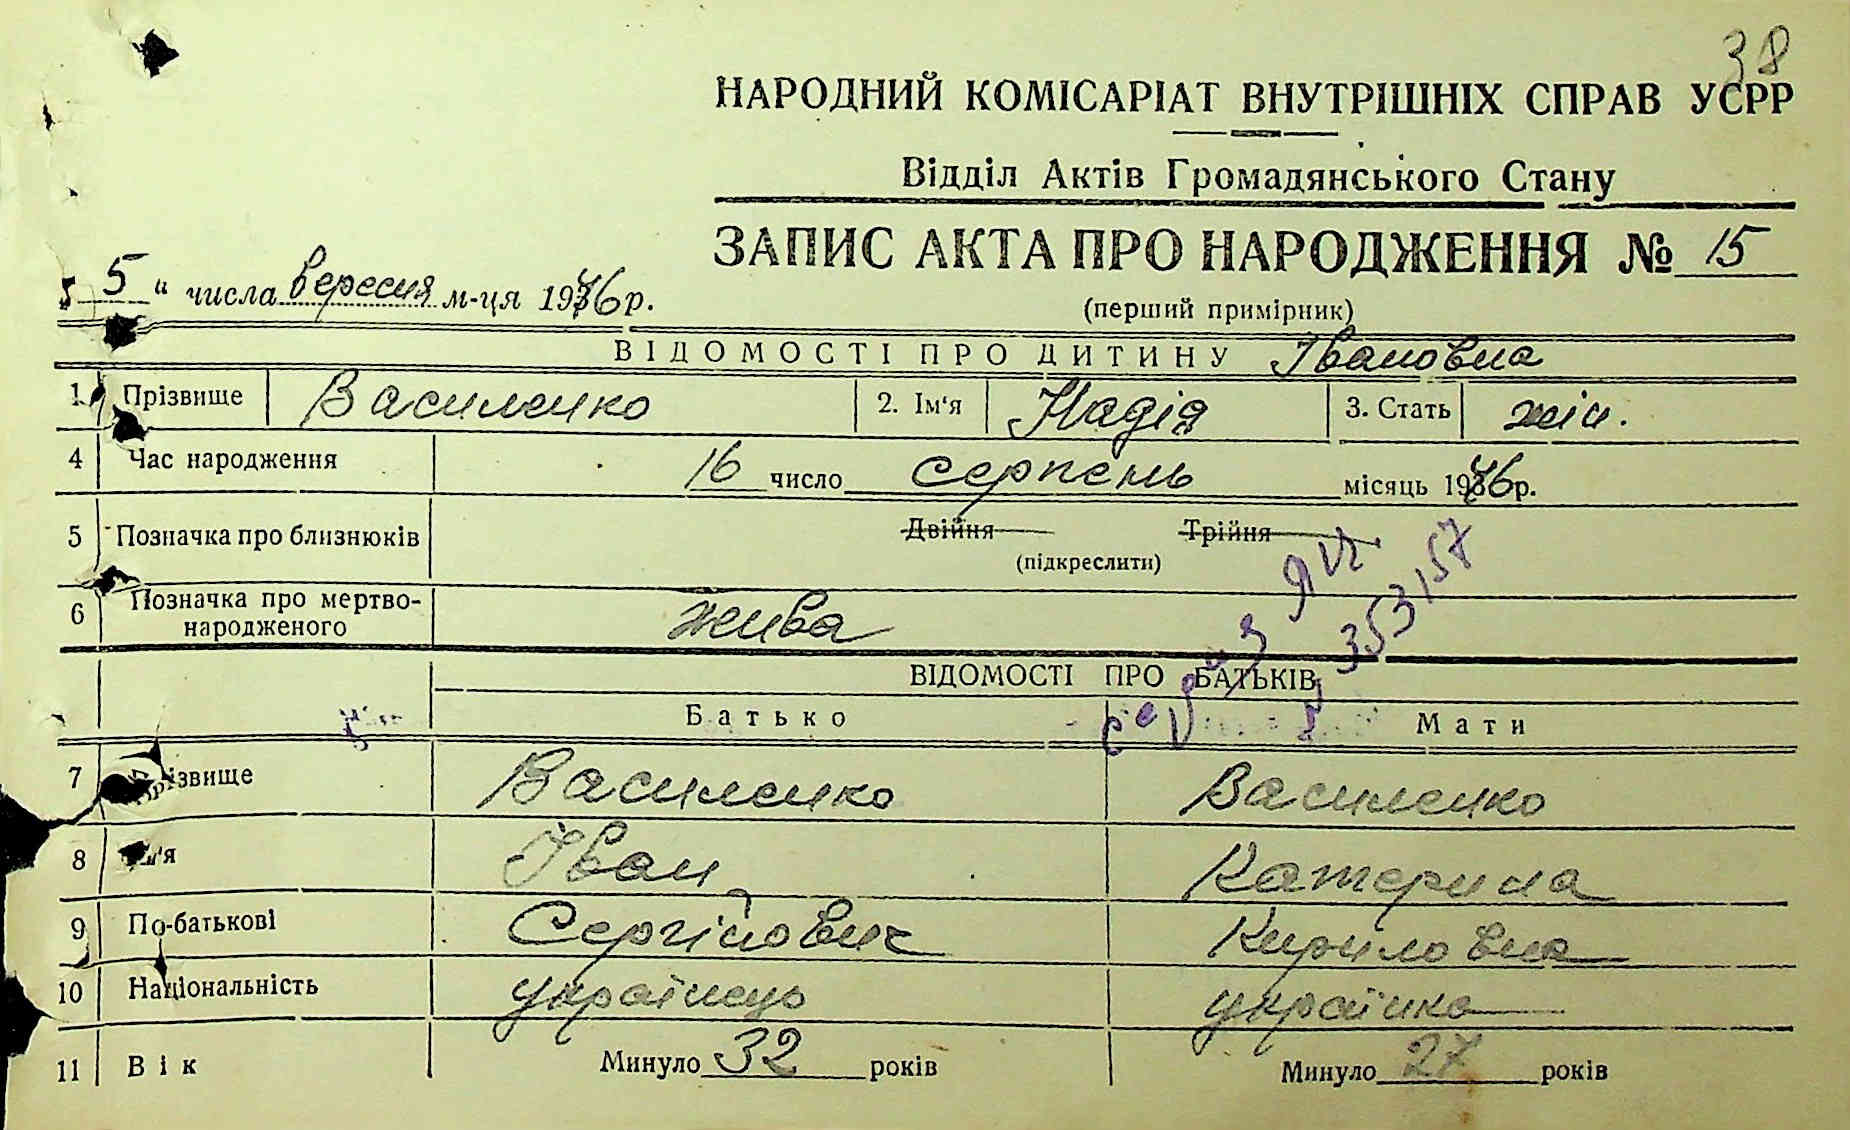 38
НАРОДНИЙ КОМІСАРІАТ ВНУТРІШНІХ СПРАВ УСРР
Відділ Актів Громадянського Стану
ЗАПИС АКТА ПРО НАРОДЖЕННЯ № 15
5 " числа вересня м-ця 1946 р.
(перший примірник)
ВІДОМОСТІ ПРО ДИТИНУ Івановна
1 Прізвище Василенко 2. Ім'я Надія 3. Стать жін.
4 Час народження 16 число серпень місяць 1946 р.
5 Позначка про близнюків Двійня Трійня
(підкреслити)
6 Позначка про мертво-
народженого жива
353157
ВІДОМОСТІ ПРО БАТЬКІВ
Батько Мати
7 Прізвище Василенко Василенко
8 Ім'я Іван Катерина
9 По-батькові Сергійович Кириловна
10 Національність українець українка
11 Вік Минуло 32 років Минуло 27 років